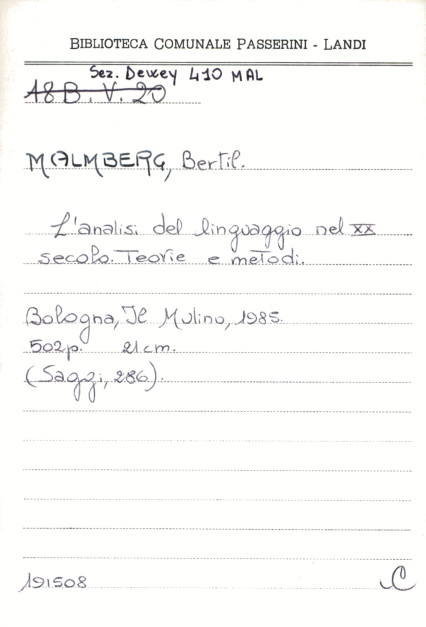 BIBLIOTECA COMUNALE PASSERINI - LANDI
Sez. Dewey 410 MAL
18 B. V. 20
MALMBERG, Bertil.
L'analisi del linguaggio nel XX
secolo. Teorie e metodi.
Bologna, Il Mulino, 1985.
502 p. 21 cm.
(Saggi, 286).
191508 C